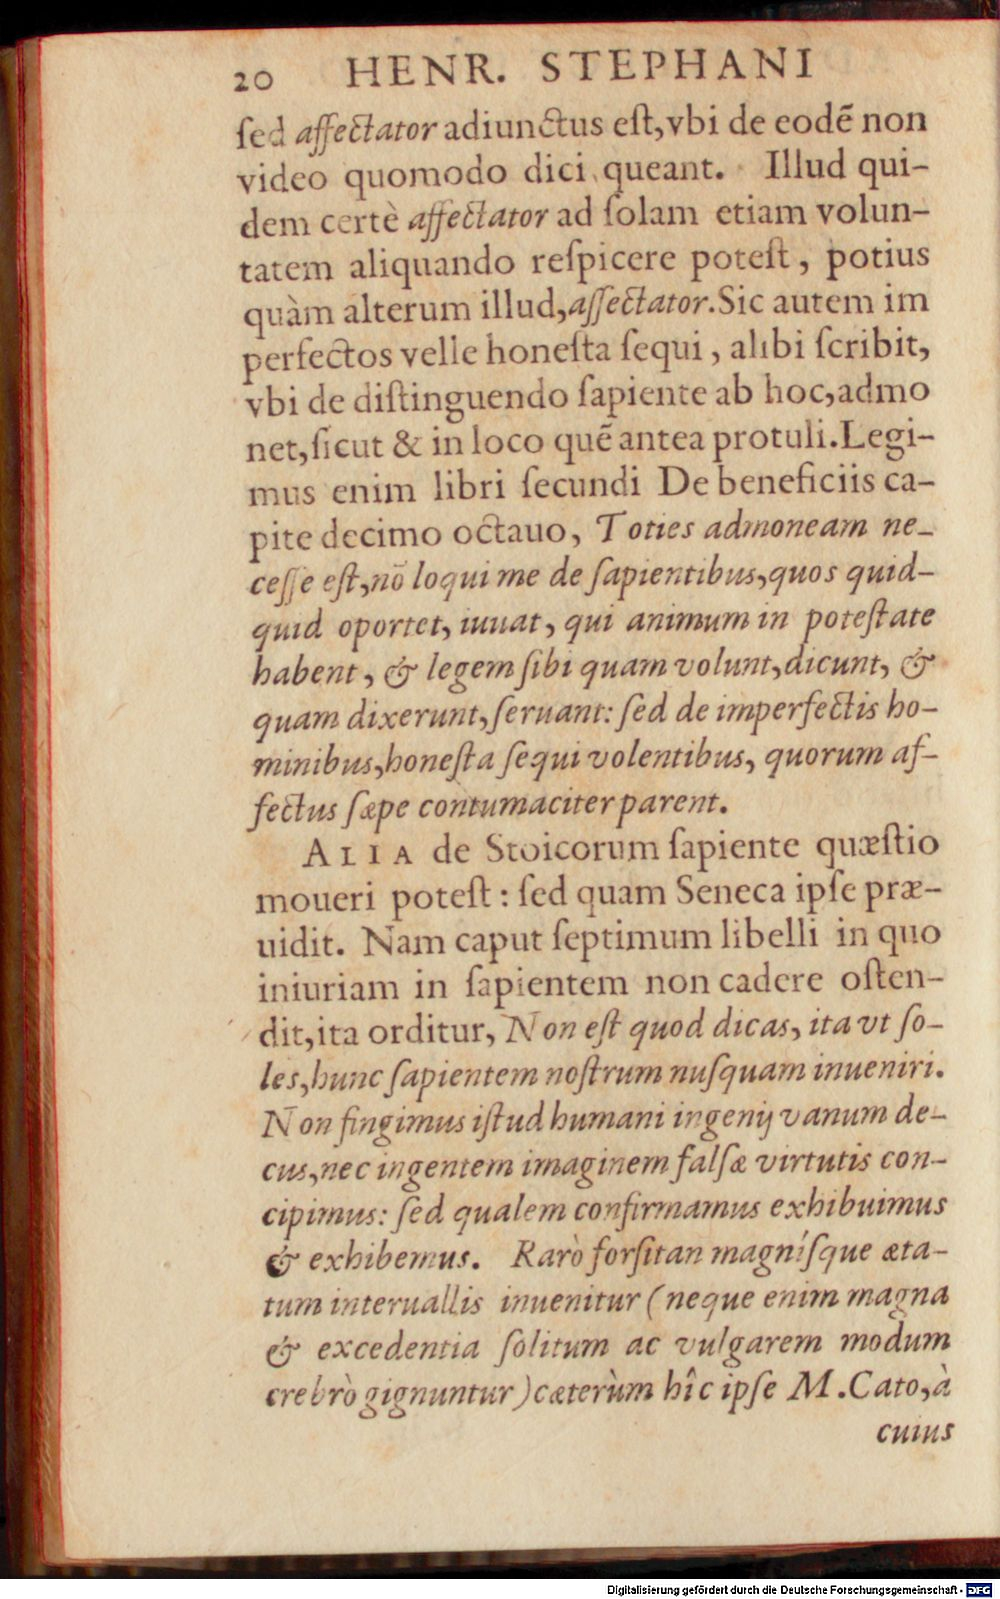 20 HENR. STEPHANI
ſed affectator adiunctus eſt,vbi de eodẽ non
video quomodo dici queant. Illud qui-
dem certè affectator ad ſolam etiam volun-
tatem aliquando reſpicere poteſt, potius
quàm alterum illud,aſſectator.Sic autem im
perfectos velle honeſta ſequi, alibi ſcribit,
vbi de diſtinguendo ſapiente ab hoc,admo
net,ſicut & in loco quẽ antea protuli.Legi-
mus enim libri ſecundi De beneficiis ca-
pite decimo octauo, Toties admoneam ne-
ceſſe eſt,nõ loqui me de ſapientibus,quos quid-
quid oportet, iuuat, qui animum in poteſtate
habent, & legem ſibi quam volunt,dicunt, &
quam dixerunt,ſeruant: ſed de imperfectis ho-
minibus,honeſta ſequi volentibus, quorum af-
fectus ſæpe contumaciter parent.
ALIA de Stoicorum ſapiente quæſtio
moueri poteſt: ſed quam Seneca ipſe præ-
uidit. Nam caput ſeptimum libelli in quo
iniuriam in ſapientem non cadere oſten-
dit,ita orditur, Non eſt quod dicas, ita vt ſo-
les,hunc ſapientem noſtrum nuſquam inueniri.
Non fingimus iſtud humani ingenij vanum de-
cus,nec ingentem imaginem falſæ virtutis con-
cipimus: ſed qualem confirmamus exhibuimus
& exhibemus. Rarò forſitan magníſque æta-
tum interuallis inuenitur (neque enim magna
& excedentia ſolitum ac vulgarem modum
crebrò gignuntur) cæterùm hîc ipſe M.Cato,à
cuius
Digitalisierung gefördert durch die Deutsche Forschungsgemeinschaft - DFG